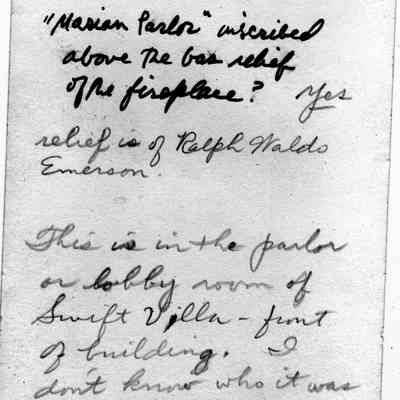 "Marian Parlor" inscribed
above the bas relief
of the fireplace? Yes
relief is of Ralph Waldo
Emerson.
This is in the parlor
or lobby room of
Swift Villa - front
of building. I
don't know who it was